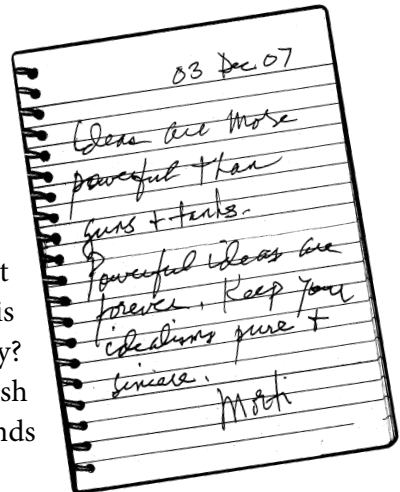 03 Dec 07
Ideas are more
powerful than
guns + tanks.
Powerful ideas are
forever. Keep your
idealisms pure +
sincere.
t
is
y?
sh
nds